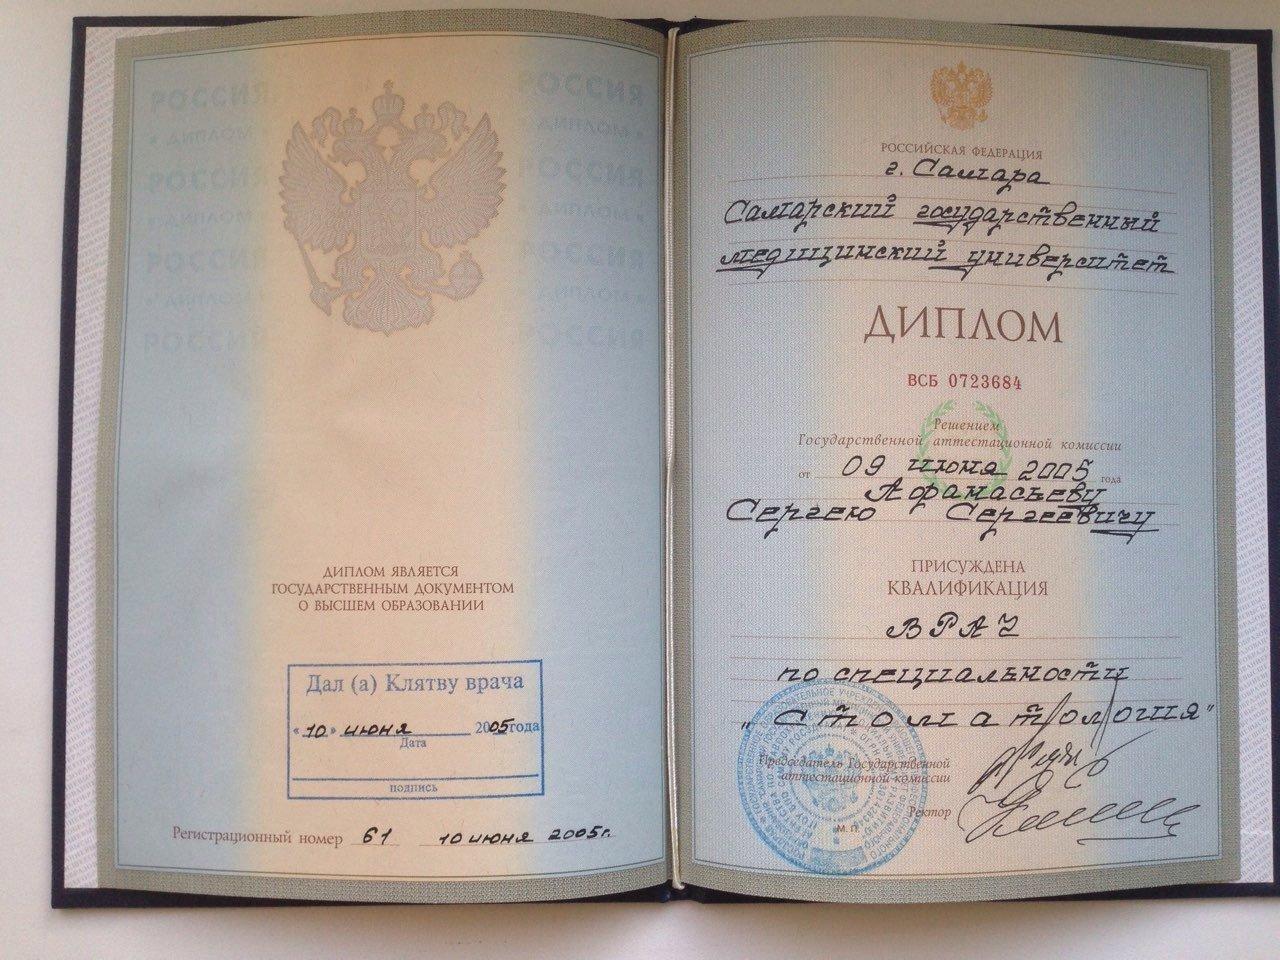 РОССИЯ РОССИЯ
« ДИПЛОМ » « ДИПЛОМ »
РОССИЯ РОССИЯ
« ДИПЛОМ » « ДИПЛОМ »
РОССИЯ РОССИЯ
« ДИПЛОМ » « ДИПЛОМ »
РОССИЯ РОССИЯ
ДИПЛОМ ЯВЛЯЕТСЯ
ГОСУДАРСТВЕННЫМ ДОКУМЕНТОМ
О ВЫСШЕМ ОБРАЗОВАНИИ
Дал (а) Клятву врача
«10» июня 2005 года
Дата
подпись
Регистрационный номер 61 10 июня 2005г.
РОССИЙСКАЯ ФЕДЕРАЦИЯ
г. Самара
Самарский государственный
медицинский университет
ДИПЛОМ
ВСБ 0723684
Решением
Государственной аттестационной комиссии
от 09 июня 2005 года
Афанасьеву
Сергею Сергеевичу
ПРИСУЖДЕНА
КВАЛИФИКАЦИЯ
ВРАЧ
по специальности
"Стоматология"
Председатель Государственной
аттестационной комиссии
Ректор
М. П.